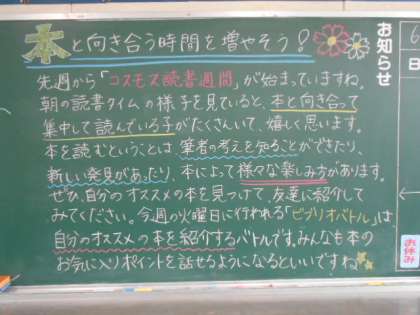 本と向き合う時間を増やそう!
お知らせ
先週から「コスモス読書週間」が始まっていますね。
朝の読書タイムの様子を見ていると、本と向き合って
集中して読んでいる子がたくさんいて、嬉しく思います。
本を読むということは筆者の考えを知ることができたり、
新しい発見があったり、本によって様々な楽しみ方があります。
ぜひ、自分のオススメの本を見つけて、友達に紹介して
みてください。今週の火曜日に行われる「ビブリオバトル」は
自分のオススメの本を紹介するバトルです。みんなも本の
お気に入りポイントを話せるようになるといいですね
6
日
お休み